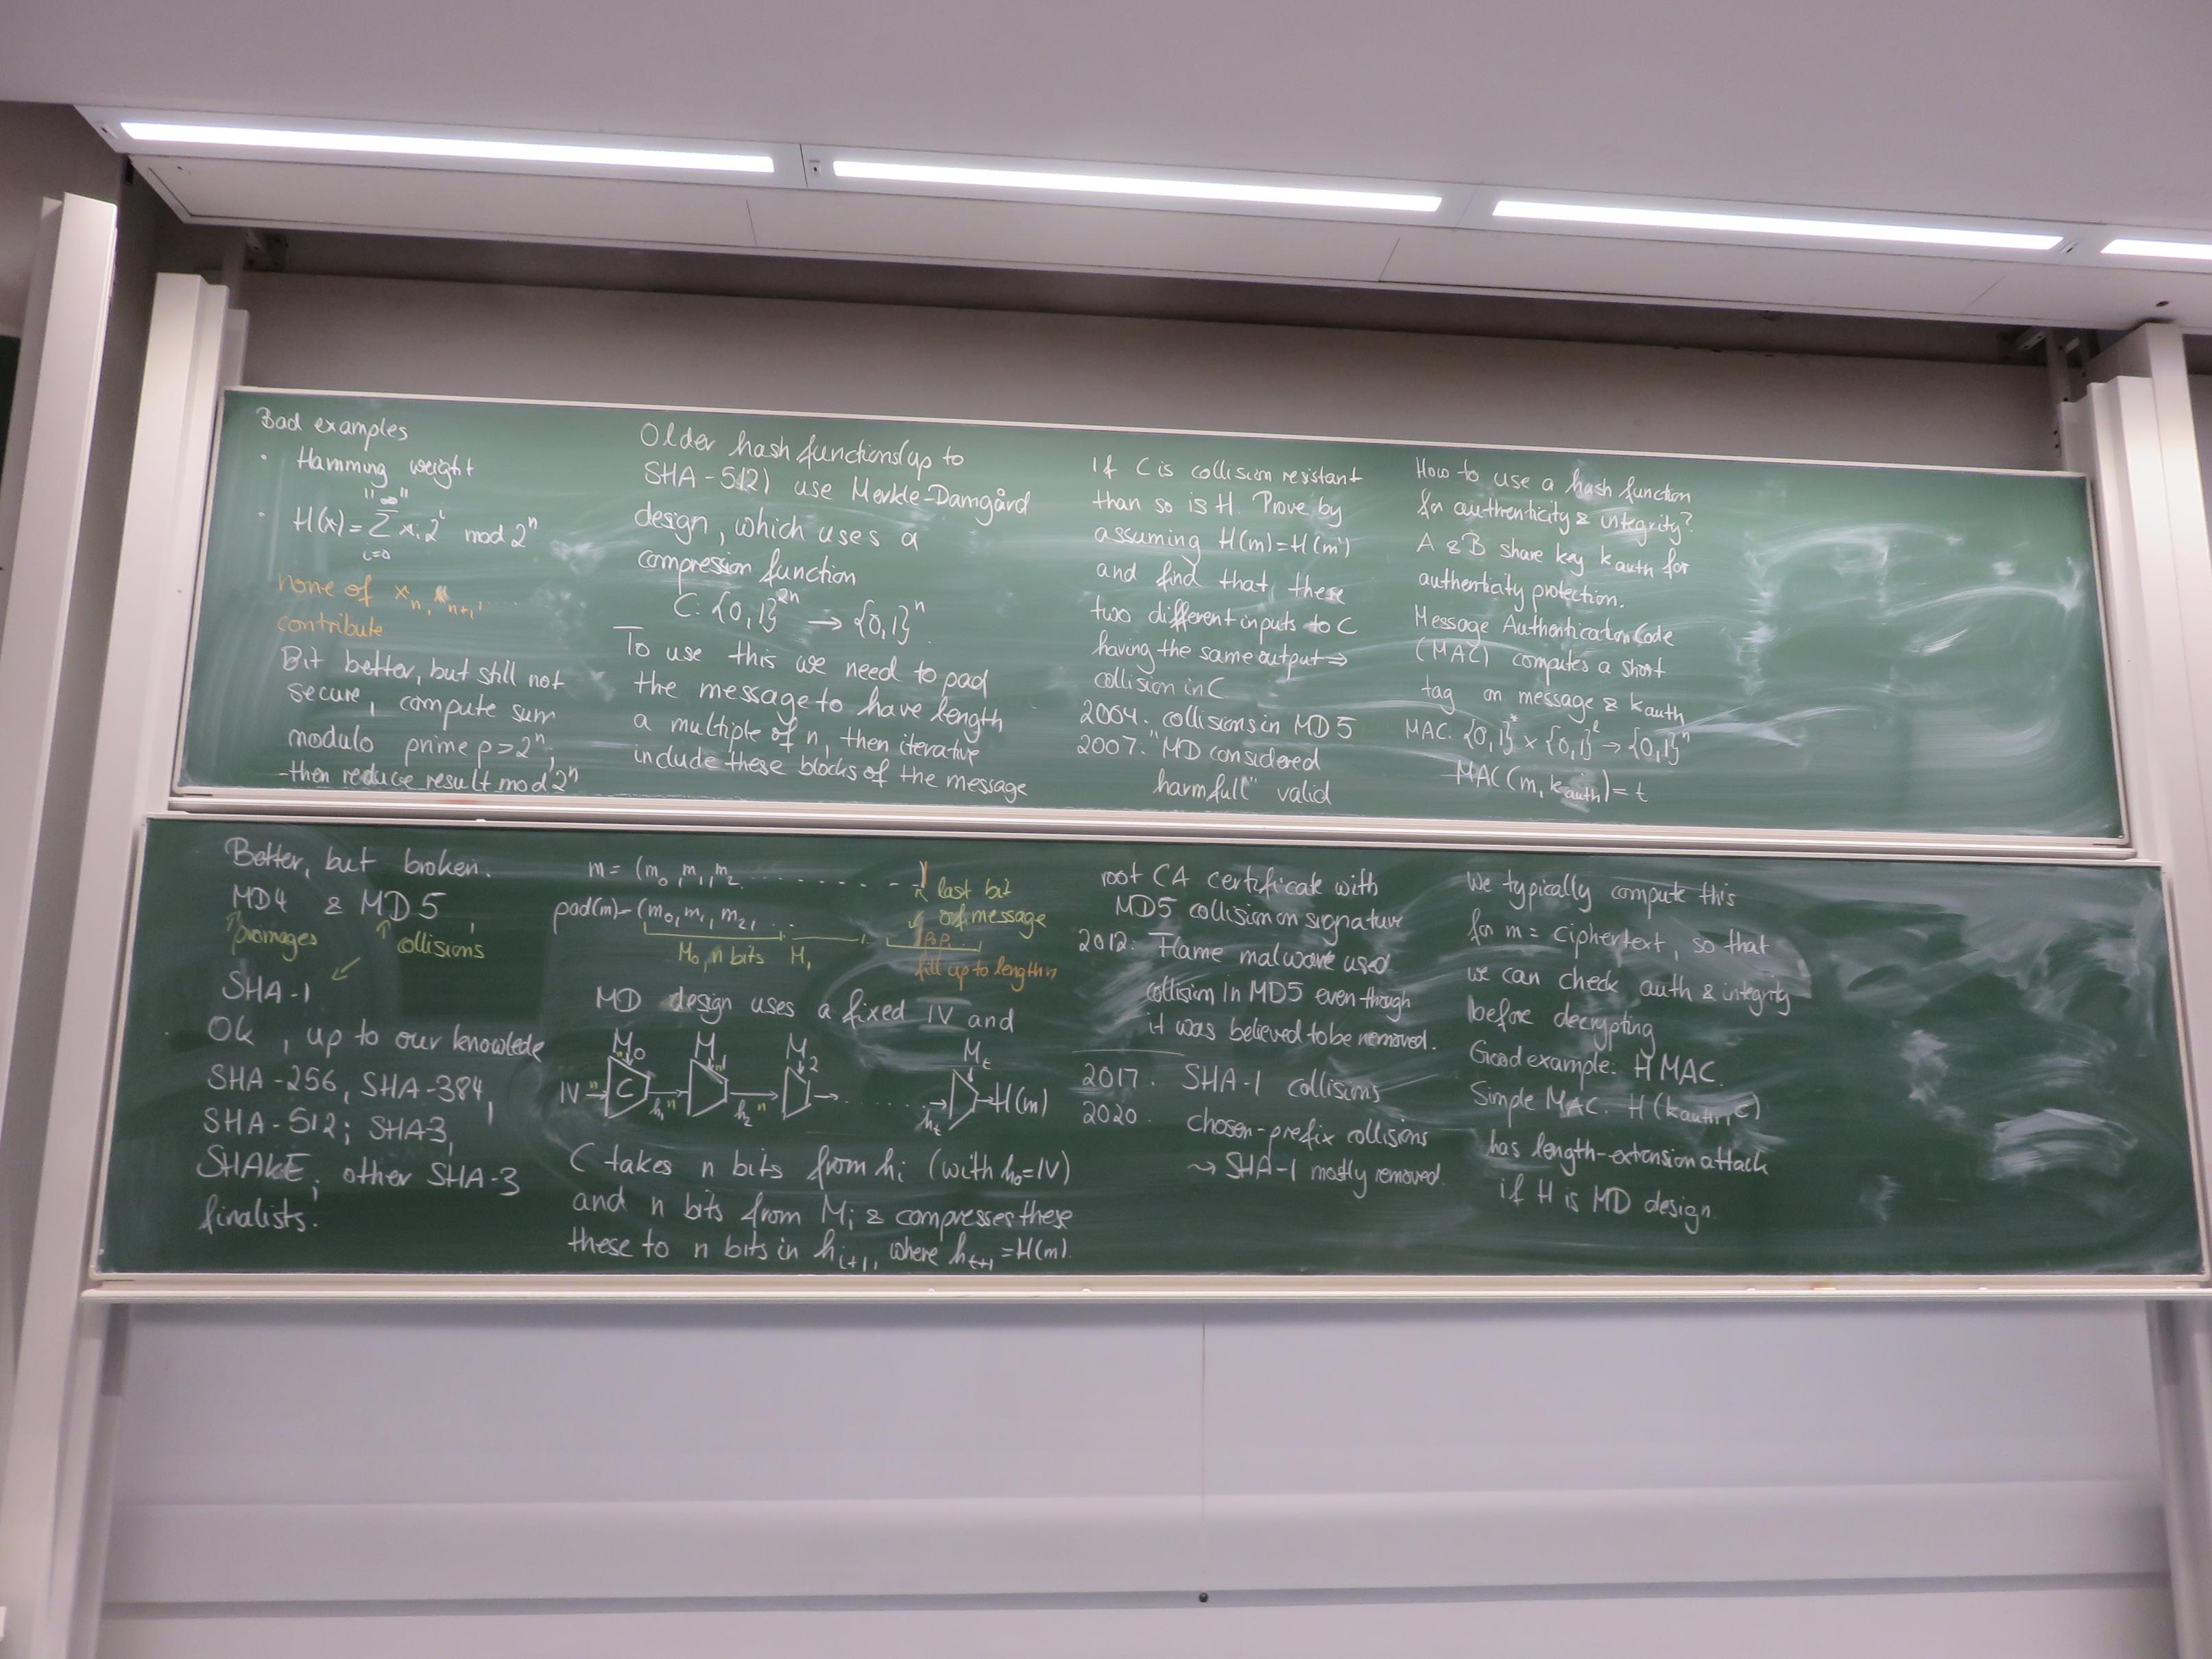 Bad examples
· Hamming weight
"∞"
· H(x) = Σ x_i 2^i mod 2^n
i=0
none of x_n, x_{n+1}, ....
contribute
Bit better, but still not
secure, compute sum
modulo prime p > 2^n,
then reduce result mod 2^n
Better, but broken.
MD4 & MD5,
collisions
SHA-1
Ok, up to our knowlede
SHA-256, SHA-384,
SHA-512; SHA3,
SHAKE; other SHA-3
finalists.
Older hash functions (up to
SHA-512) use Merkle-Damgård
design, which uses a
compression function
C: {0,1}^{2n} → {0,1}^n.
To use this we need to pad
the message to have length
a multiple of n, then iterative
include these blocks of the message
m = (m_0, m_1, m_2 ........ )
last bit
of message
pad(m) = (m_0, m_1, m_2, ...
M_0, n bits M_1
fill up to length n
MD design uses a fixed IV and
M_0 M_1 M_2 M_t
IV → C → → → ...... → → H(m)
h_1 n h_2 n h_t
C takes n bits from h_i (with h_0 = IV)
and n bits from M_i & compresses these
these to n bits in h_{i+1}, where h_{t+1} = H(m).
If C is collision resistant
than so is H. Prove by
assuming H(m) = H(m')
and find that there
two different inputs to C
having the same output ⇒
collision in C
2004: collisions in MD5
2007: "MD considered
harmfull" valid
root CA certificate with
MD5 collision on signature
2012: Flame malware used
collision in MD5 even though
it was believed to be removed.
2017: SHA-1 collisions
2020: chosen-prefix collisions
⤳ SHA-1 mostly removed.
How to use a hash function
for authenticity & integrity?
A & B share key k_auth for
authenticity protection.
Message Authentication Code
(MAC) computes a short
tag on message & k_auth
MAC: {0,1}^* × {0,1}^l → {0,1}^n
MAC(m, k_auth) = t
We typically compute this
for m = ciphertext, so that
we can check auth & integrity
before decrypting
Good example: HMAC.
Simple MAC: H(k_auth, c)
has length-extension attack
if H is MD design.